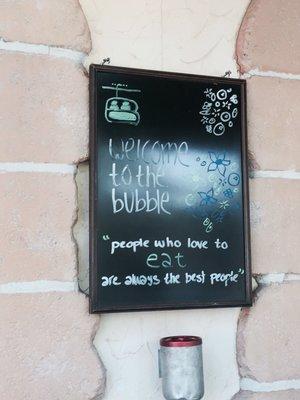 Welcome
to the
bubble
"people who love to
eat
are always the best people"